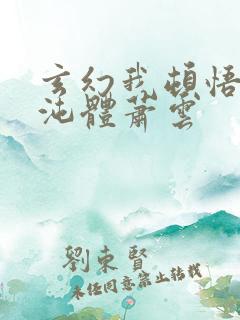 玄幻我頓悟
沌體蕭雲
劉東賢
未經同意禁止轉載